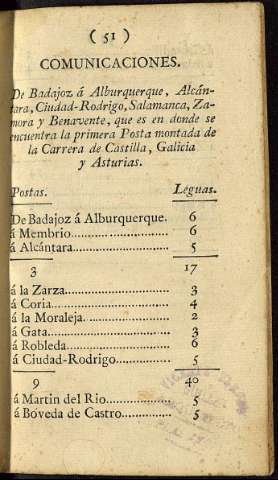 ( 51 )
COMUNICACIONES.
De Badajoz á Alburquerque, Alcán-
tara, Ciudad-Rodrigo, Salamanca, Za-
mora y Benavente, que es en donde se
encuentra la primera Posta montada de
la Carrera de Castilla, Galicia
y Asturias.
Postas. Leguas.
De Badajoz á Alburquerque. 6
á Membrio 6
á Alcántara 5
3 17
á la Zarza 3
á Coria 4
á la Moraleja 2
á Gata 3
á Robleda 6
á Ciudad-Rodrigo 5
9 40
á Martin del Rio 5
á Bóveda de Castro 5